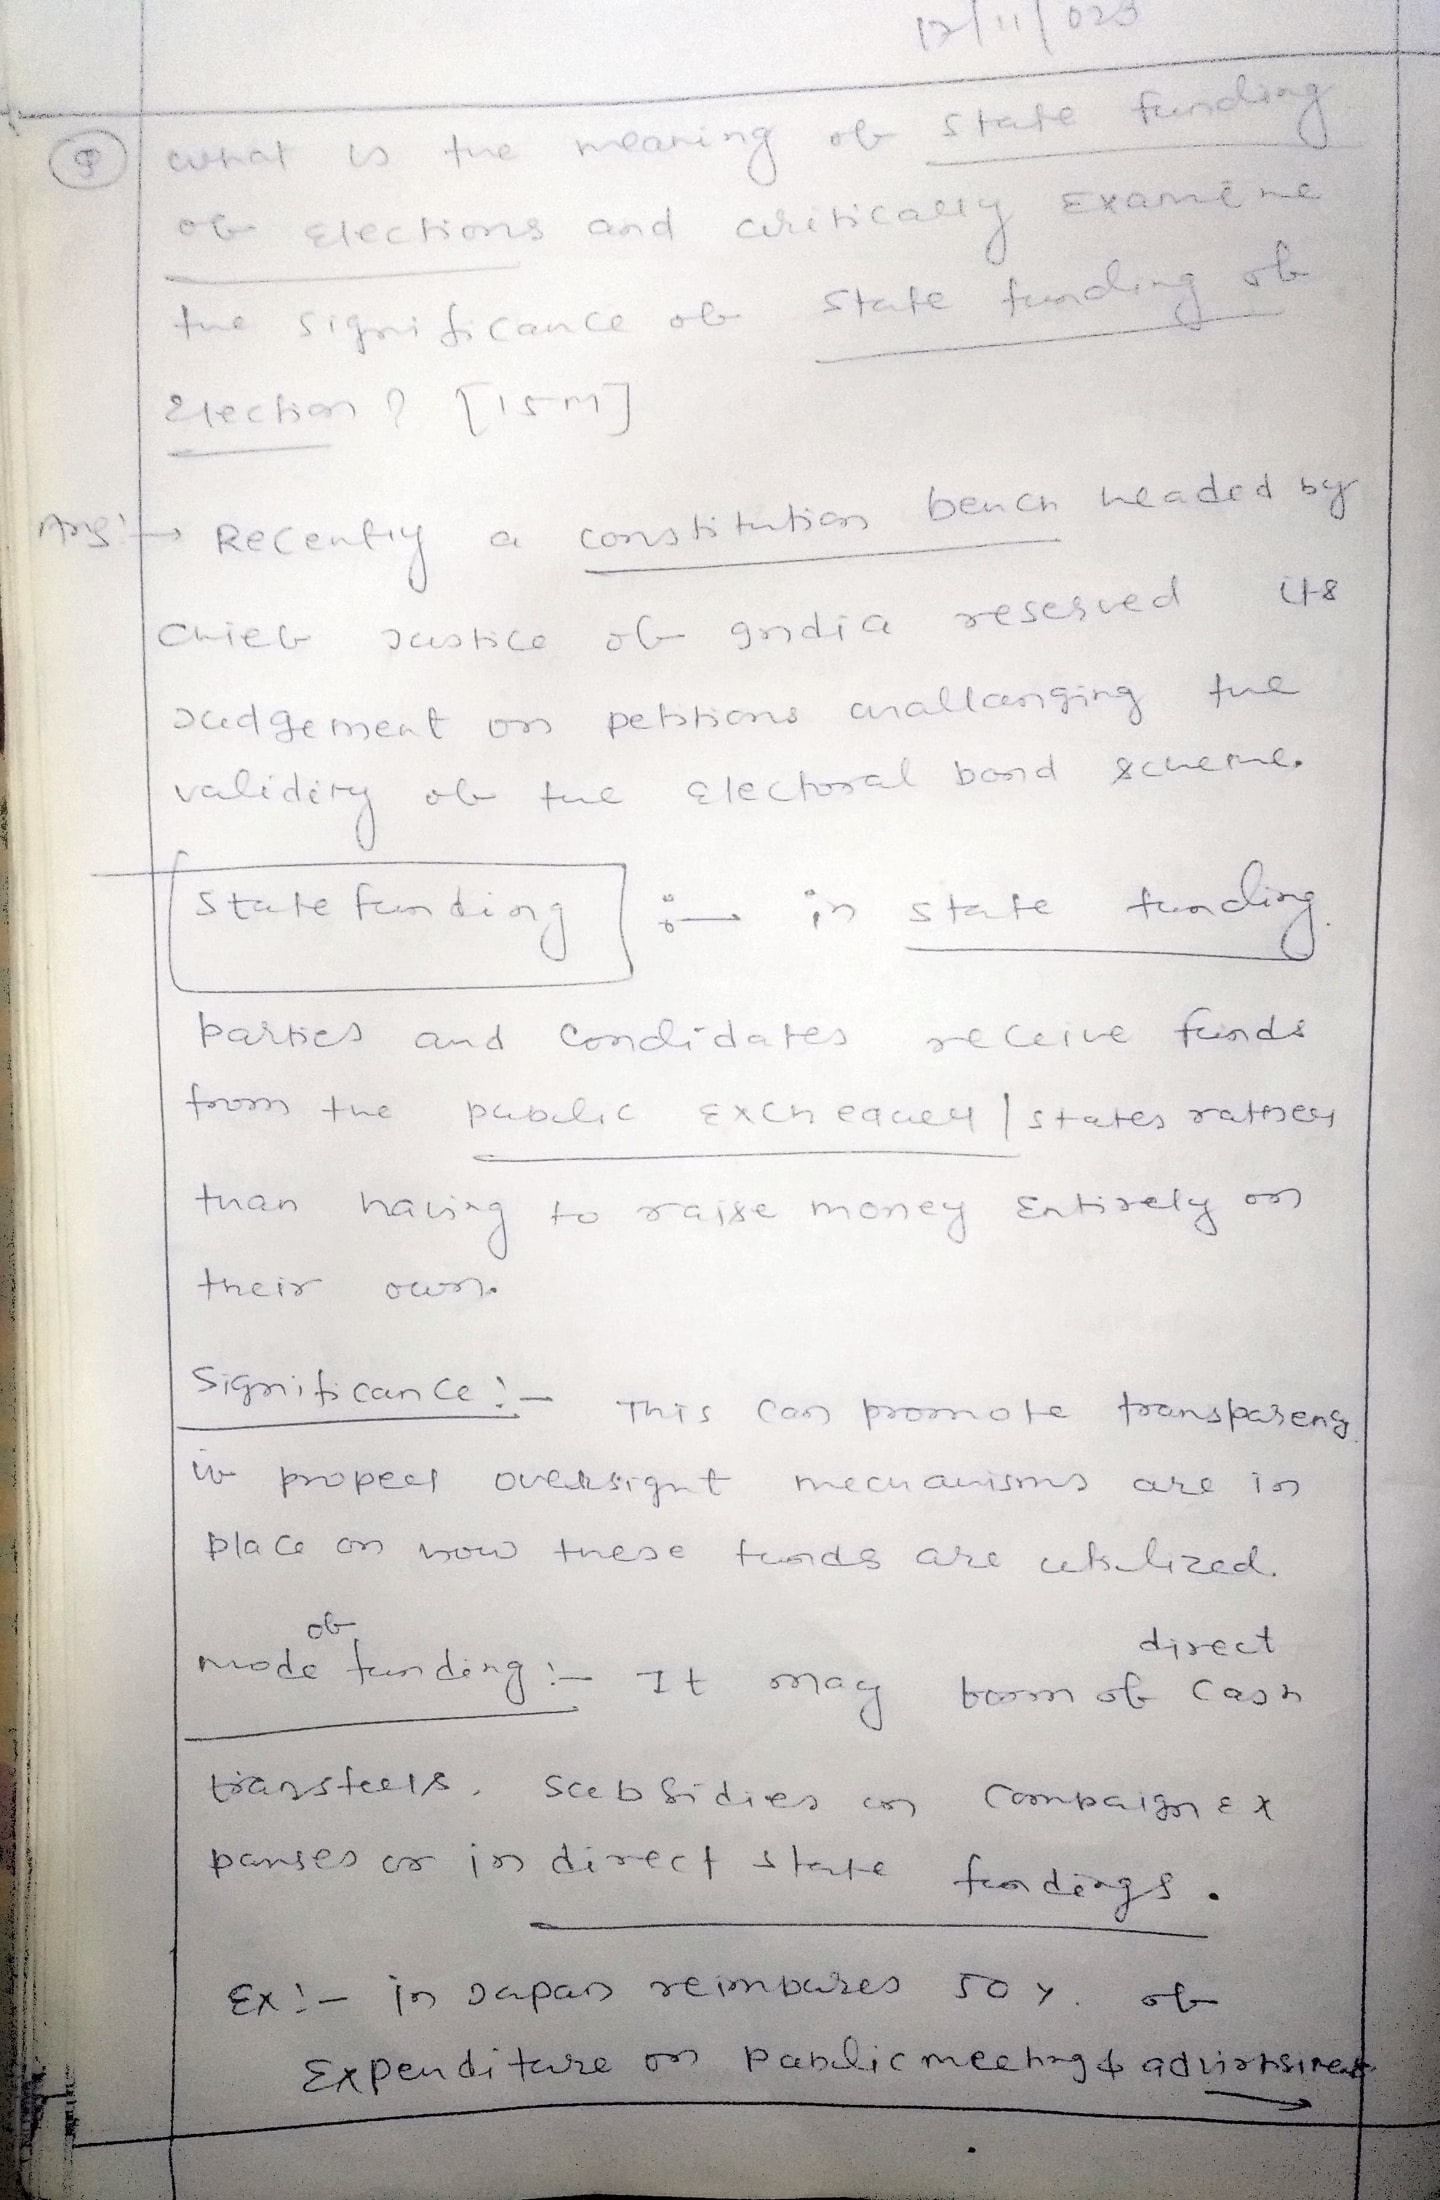 12/11/023
Q what is the meaning of state funding
of Elections and critically Examine
the significance of state funding of
Election? [15m]
Ans:→ Recently a constitution bench headed by
chief Justice of India reserved its
Judgement on petitions challanging the
validity of the Electoral bond scheme.
State funding :— in state funding
parties and condidates receive funds
from the public Exchequer / states rather
than having to raise money Entirely on
their own.
Significance:— This can promote transparency
if proper oversight mechanisms are in
place on how these funds are utilized.
of direct
mode funding:— It may form of cash
transfers, subsidies on compaign ex
panses or in direct state fundings.
Ex:— in Japan reimbures 50%. of
Expenditure on Public meeting &